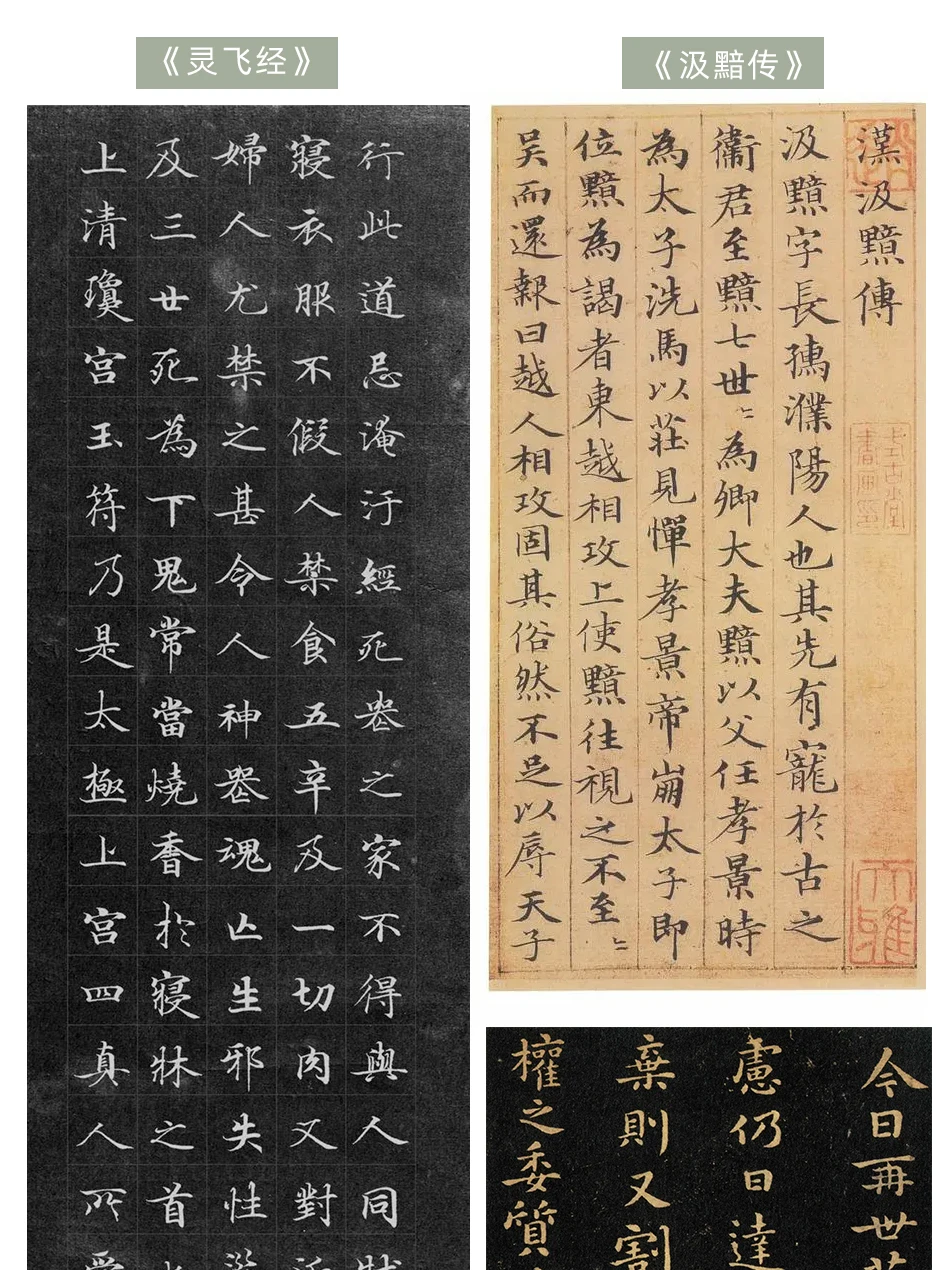 《灵飞经》
行此道忌淹汙經死丧之家不得與人同牀
寢衣服不假人禁食五辛及一切肉又對近
婦人尤禁之甚令人神丧魂亾生邪失性
及三世死為下鬼常當燒香於寢牀之首
上清瓊宫玉符乃是太極上宫四真人所
《汲黯传》
漢汲黯傳
汲黯字長孺濮陽人也其先有寵於古之
衞君至黯七世〻為卿大夫黯以父任孝景時
為太子洗馬以莊見憚孝景帝崩太子即
位黯為謁者東越相攻上使黯往視之不至〻
吴而還報曰越人相攻固其俗然不足以辱天子
今日再世
慮仍曰達
棄則又割
權之委質